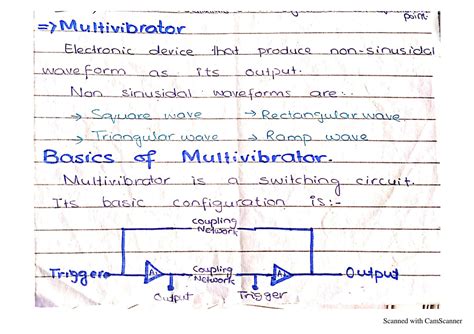 point
=> Multivibrator
Electronic device that produce non-sinusidal
waveform as its output.
Non sinusidal waveforms are:-
→ Square wave → Rectangular wave
→ Triangular wave → Ramp wave
Basics of Multivibrator.
Multivibrator is a switching circuit.
Its basic configuration is:-
Coupling
Network
Trigger A1 Coupling Network A2 Output
Output Trigger
Scanned with CamScanner